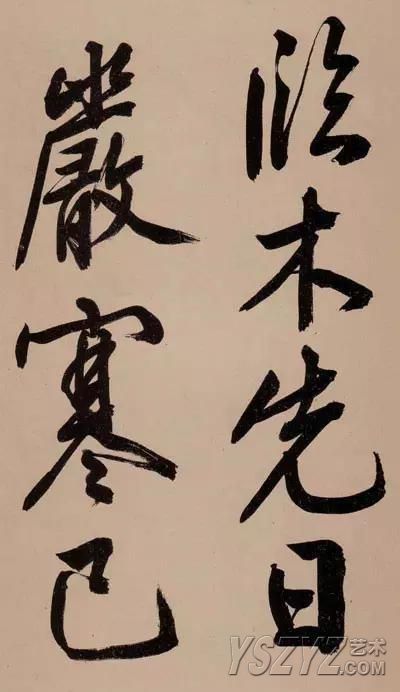 陰木先日
嚴寒已
YSZYZ艺术